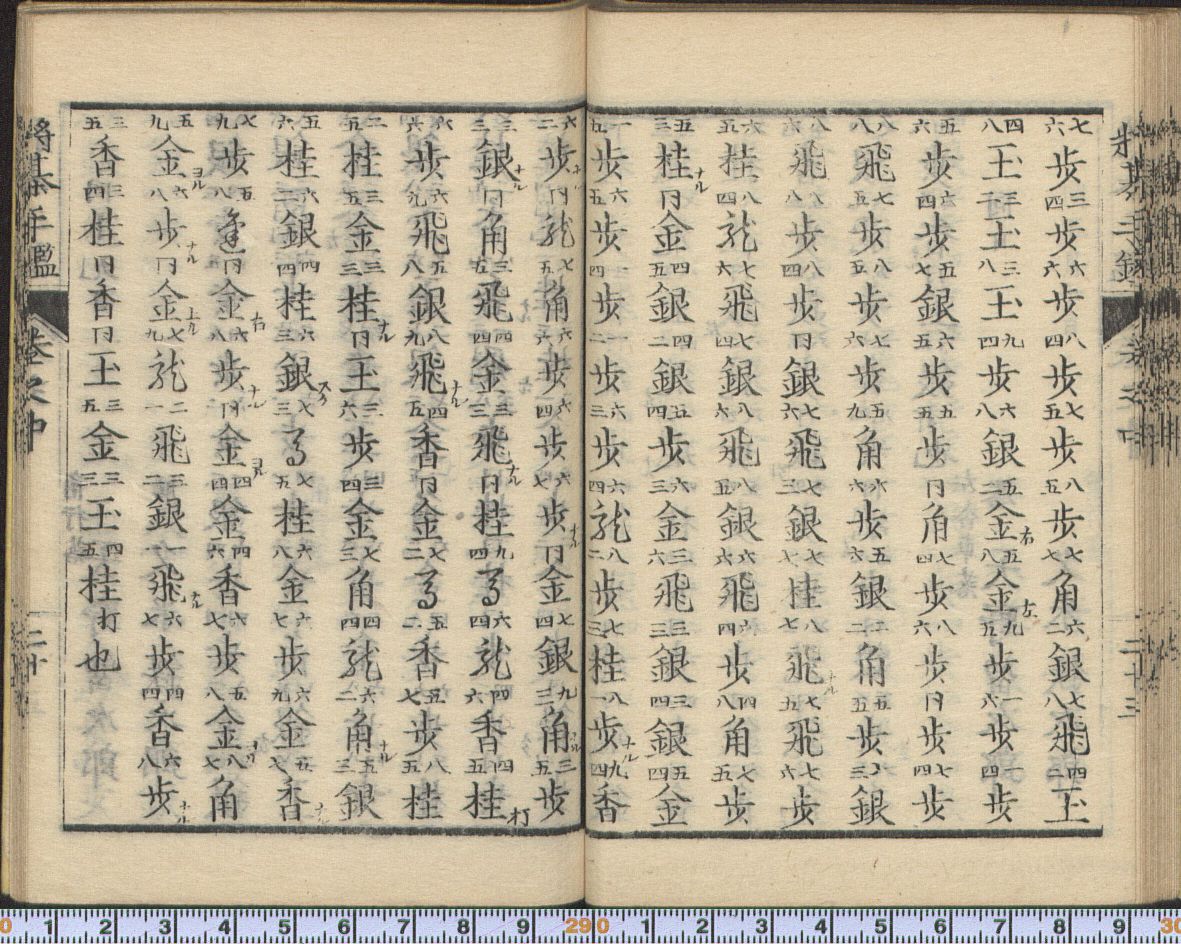 七六歩三四歩六六歩八四歩七五歩八五歩七七角六二銀七八飛四二玉
四八玉三二玉三八玉九四歩六八銀五二金右五八金左九五歩一六歩一四歩
五六歩六四歩五七銀六五歩五五歩同角七四歩八六歩同歩七四歩
八八飛七五歩八五歩七六歩五九角六六歩五六銀二二角五五歩三三銀
八六飛八八歩八四歩同銀七六飛七三銀七七桂八七飛ナル七五飛七六歩
六五桂八四龍七六飛七四銀八六飛八五銀六六飛六四歩四八角七五歩
五三桂ナル同金四五銀四二銀五四歩六三金三六飛三三銀三四銀五四金
一五歩六五歩一四歩一二歩六三歩六四龍八二歩七三桂八一歩ナル九四香
六二歩ナル同龍七五角六六歩六四歩六七歩ナル同金七四銀九三角ナル三五歩
三三銀ナル同角三五飛四四金三三飛ナル同桂九四馬六四龍四六香四五桂打
六六歩六九飛五八銀八九飛ナル四五香同金七二馬五二香五七歩八五桂
二五桂三五金三三桂ナル同玉三六歩三四金七三角四四龍六二角ナル五三銀
五六桂六二銀四四桂六三銀七三馬七五桂六八金六七歩六九金五七香ナル
七九歩五八同金右六八歩ナル同金ヨル四四金四六香六七歩五八金八七角
五九金ヨル六八歩ナル同金上ル七九龍二一飛三二銀一一飛ナル六七歩四四香六八歩ナル
三五香三四桂同香同玉三五金三三玉四五桂打也
将棊手鑑
巻之中